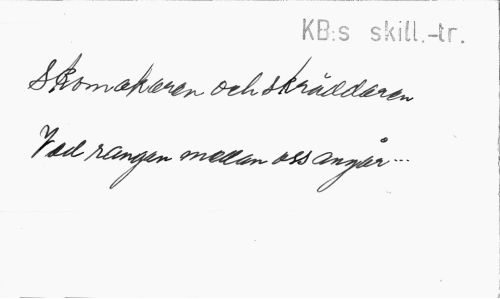 KB:s skill.-tr.
Skomakaren och skräddaren
Vad rangen mellan oss angår...